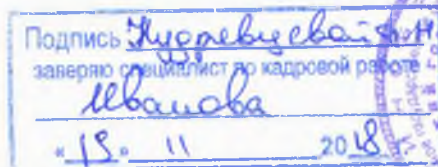 Подпись Кудрявцевой
заверяю специалист по кадровой работе
Иванова
«15» 11 2018